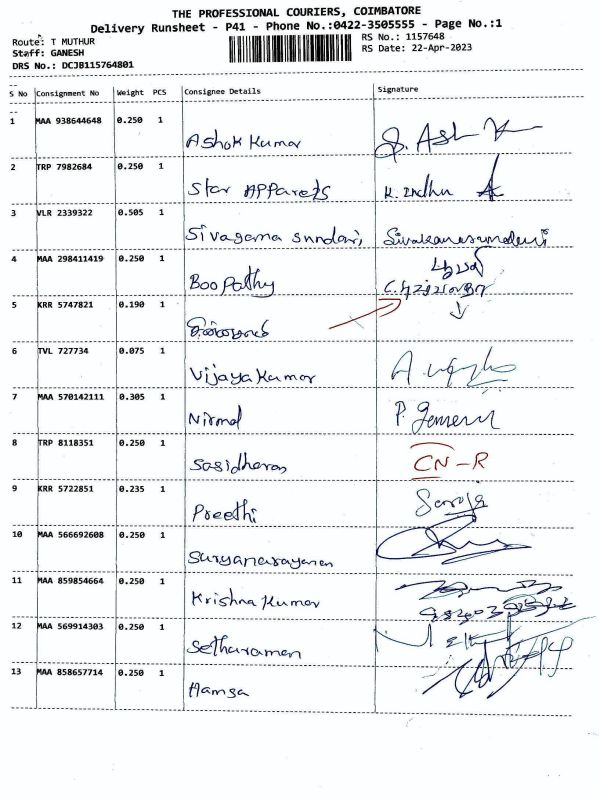 THE PROFESSIONAL COURIERS, COIMBATORE
Delivery Runsheet - P41 - Phone No.:0422-3505555 - Page No.:1
Route: T MUTHUR
RS No.: 1157648
Staff: GANESH
RS Date: 22-Apr-2023
DRS No.: DCJB115764801
S No Consignment No Weight PCS Consignee Details Signature
1 MAA 938644648 0.250 1
Ashok Kumar
2 TRP 7982684 0.250 1
Star APParels K. Indhu
3 VLR 2339322 0.505 1
Sivagama sundari
4 MAA 298411419 0.250 1
BooPathy
5 KRR 5747821 0.190 1
6 TVL 727734 0.075 1
Vijaya Kumar
7 MAA 570142111 0.305 1
Nirmal
8 TRP 8118351 0.250 1
Sasidharan CN-R
9 KRR 5722851 0.235 1
Preethi Saroja
10 MAA 566692608 0.250 1
Suryanarayanan
11 MAA 859854664 0.250 1
Krishna Kumar
12 MAA 569914303 0.250 1
Setharaman
13 MAA 858657714 0.250 1
Hamsa